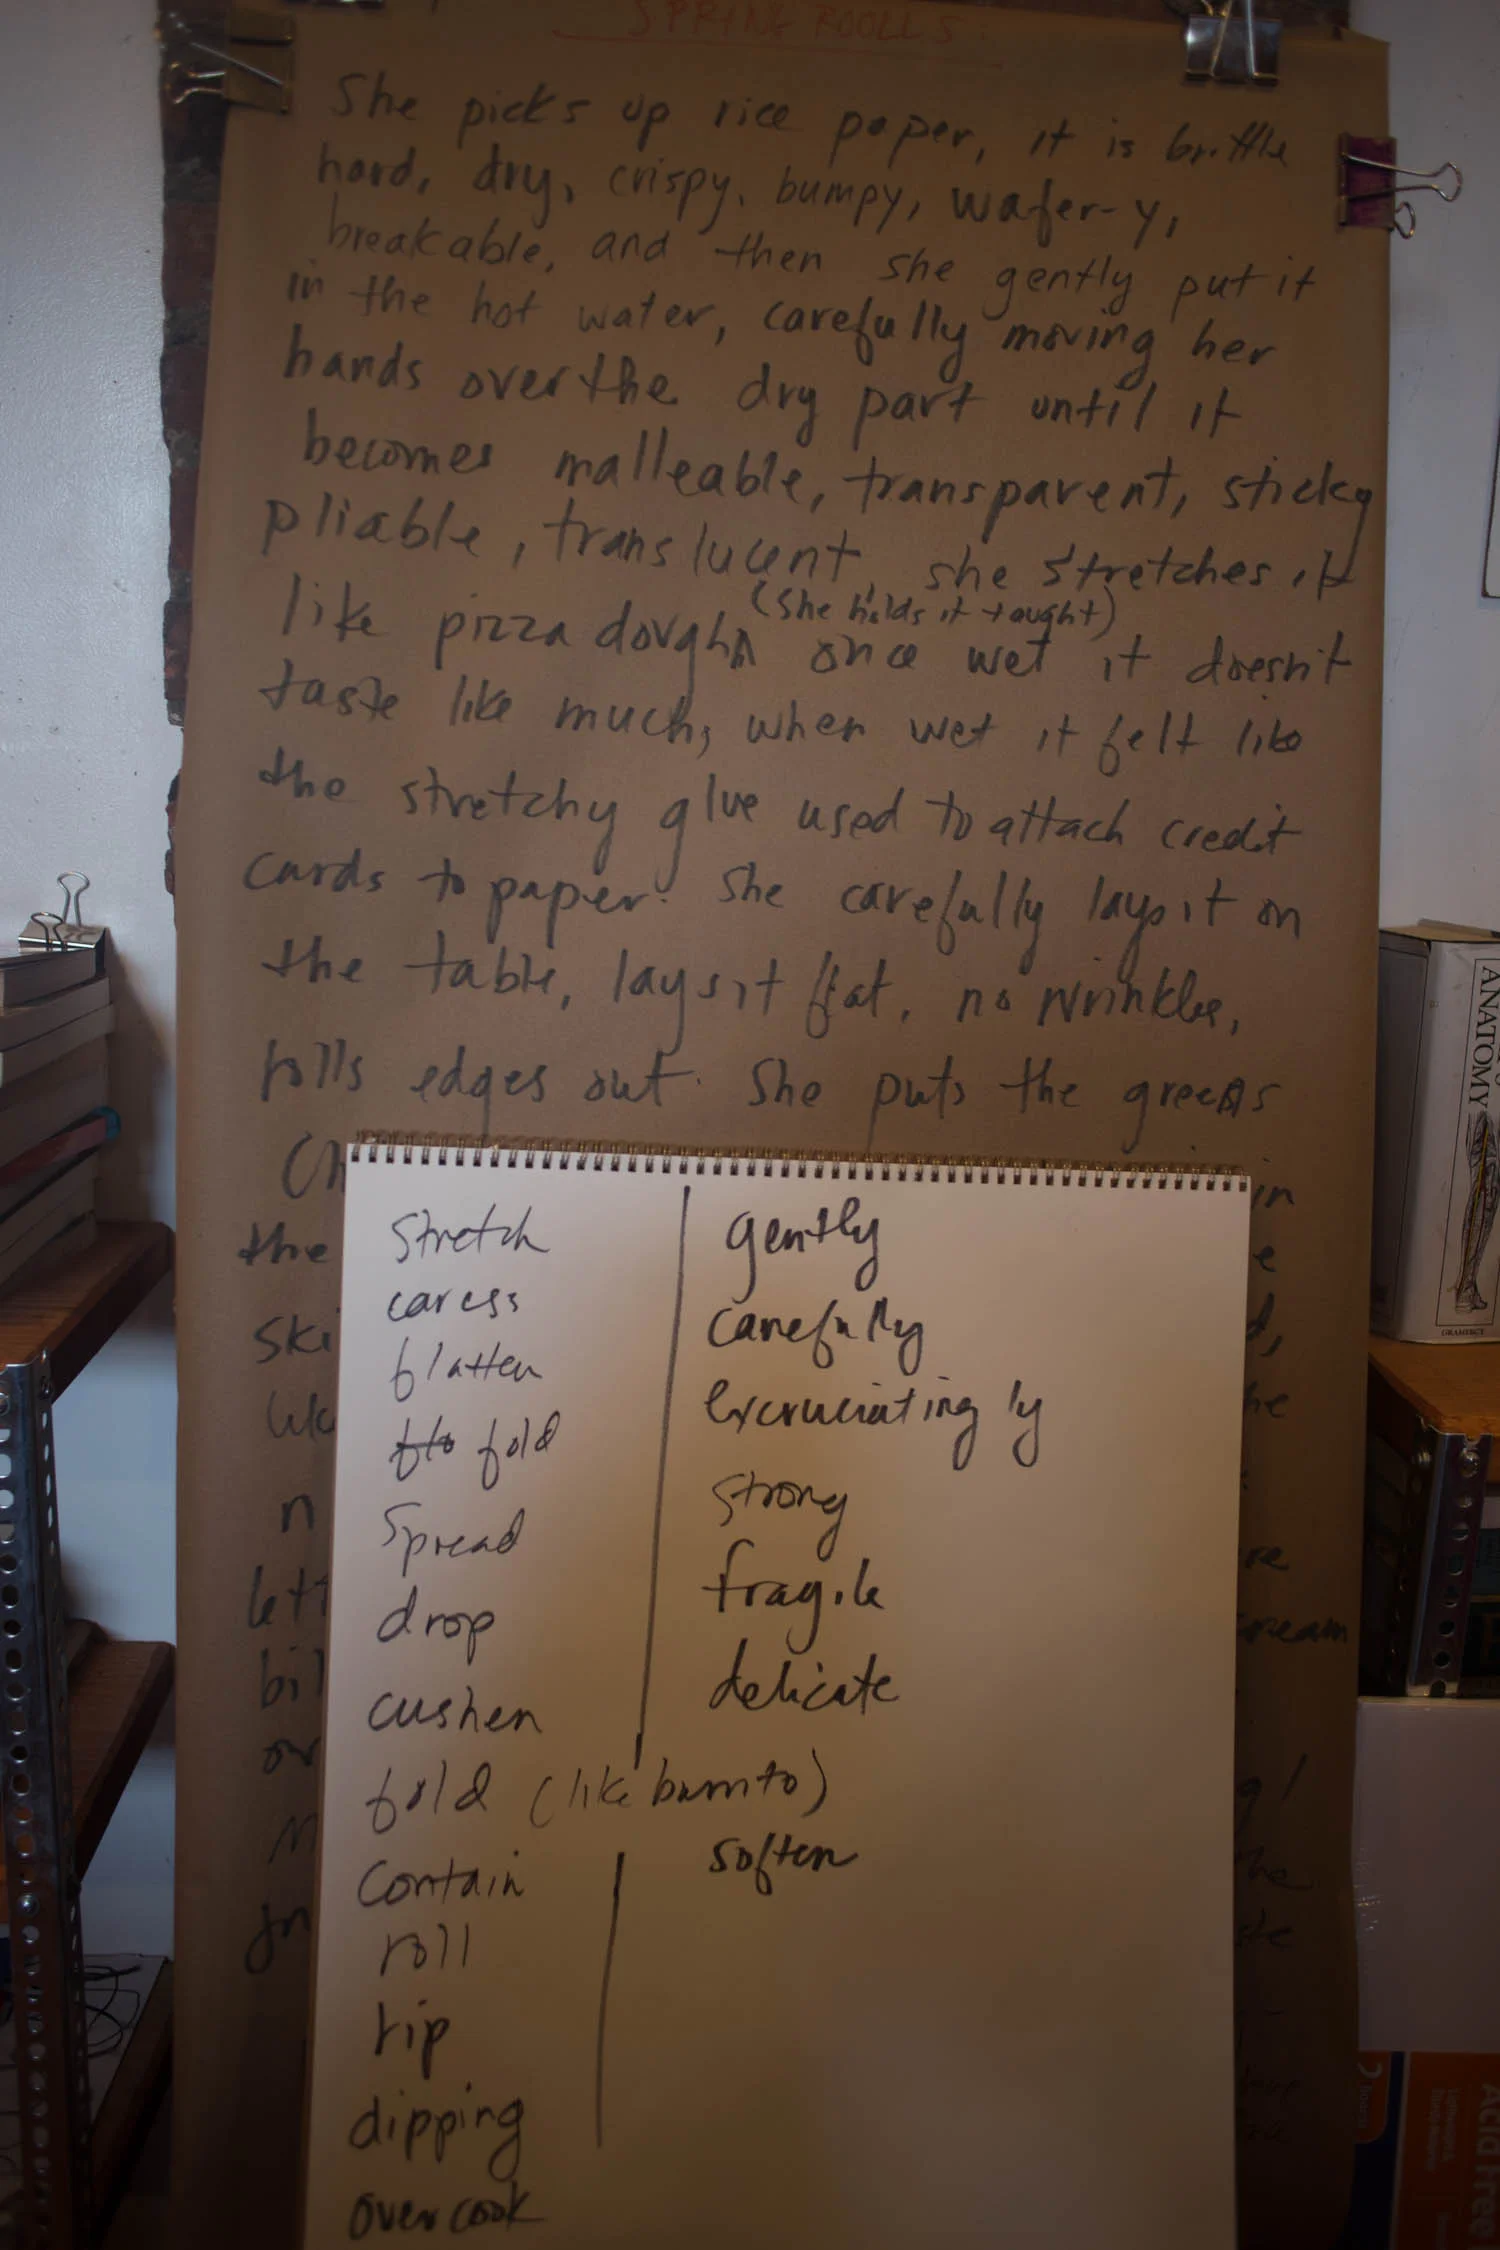 SPRING ROOLLS
She picks up rice paper, it is brittle
hard, dry, crispy, bumpy, wafer-y,
breakable, and then she gently put it
in the hot water, carefully moving her
hands over the dry part until it
becomes malleable, transparent, sticky
pliable, translucent, she stretches it
(she holds it tought)
like pizza dough once wet it doesn't
taste like much, when wet it felt like
the stretchy glue used to attach credit
cards to paper. She carefully lays it on
the table, lays it flat, no wrinkles,
rolls edges out. She puts the greens
in
the
stretch
caress
flatten
flo fold
spread
drop
cushen
fold (like burrito)
contain
roll
rip
dipping
overcook
gently
carefully
excruciatingly
strong
fragile
delicate
soften
ANATOMY
GRAMERCY
Acid Free